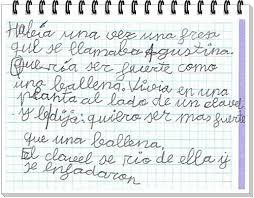 Había una vez una fresa
que se llamaba Agustina.
Quería ser fuerte como
una ballena. Vivía en una
planta al lado de un clavel
y le dija: quiero ser mas fuerte
que una ballena,
El clavel se rio de ella y
se enfadaron